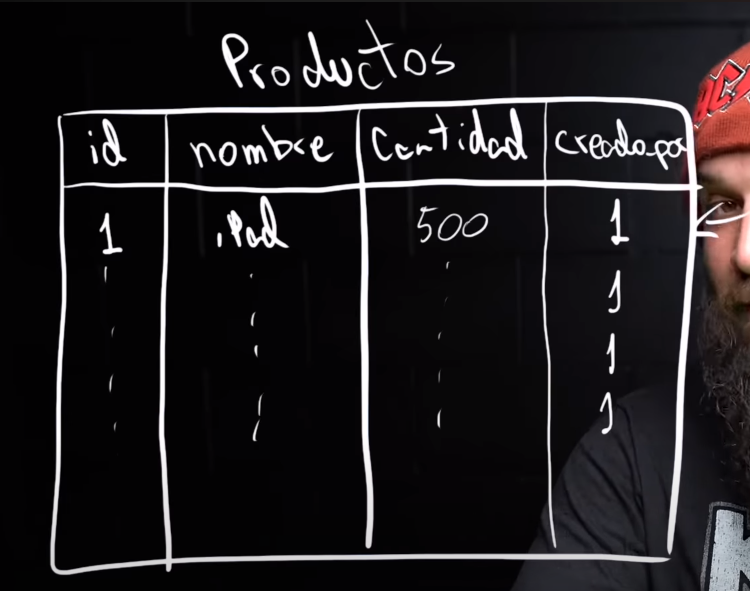 Productos
id nombre Cantidad creado_por
1 iPad 500 1
1
1
1